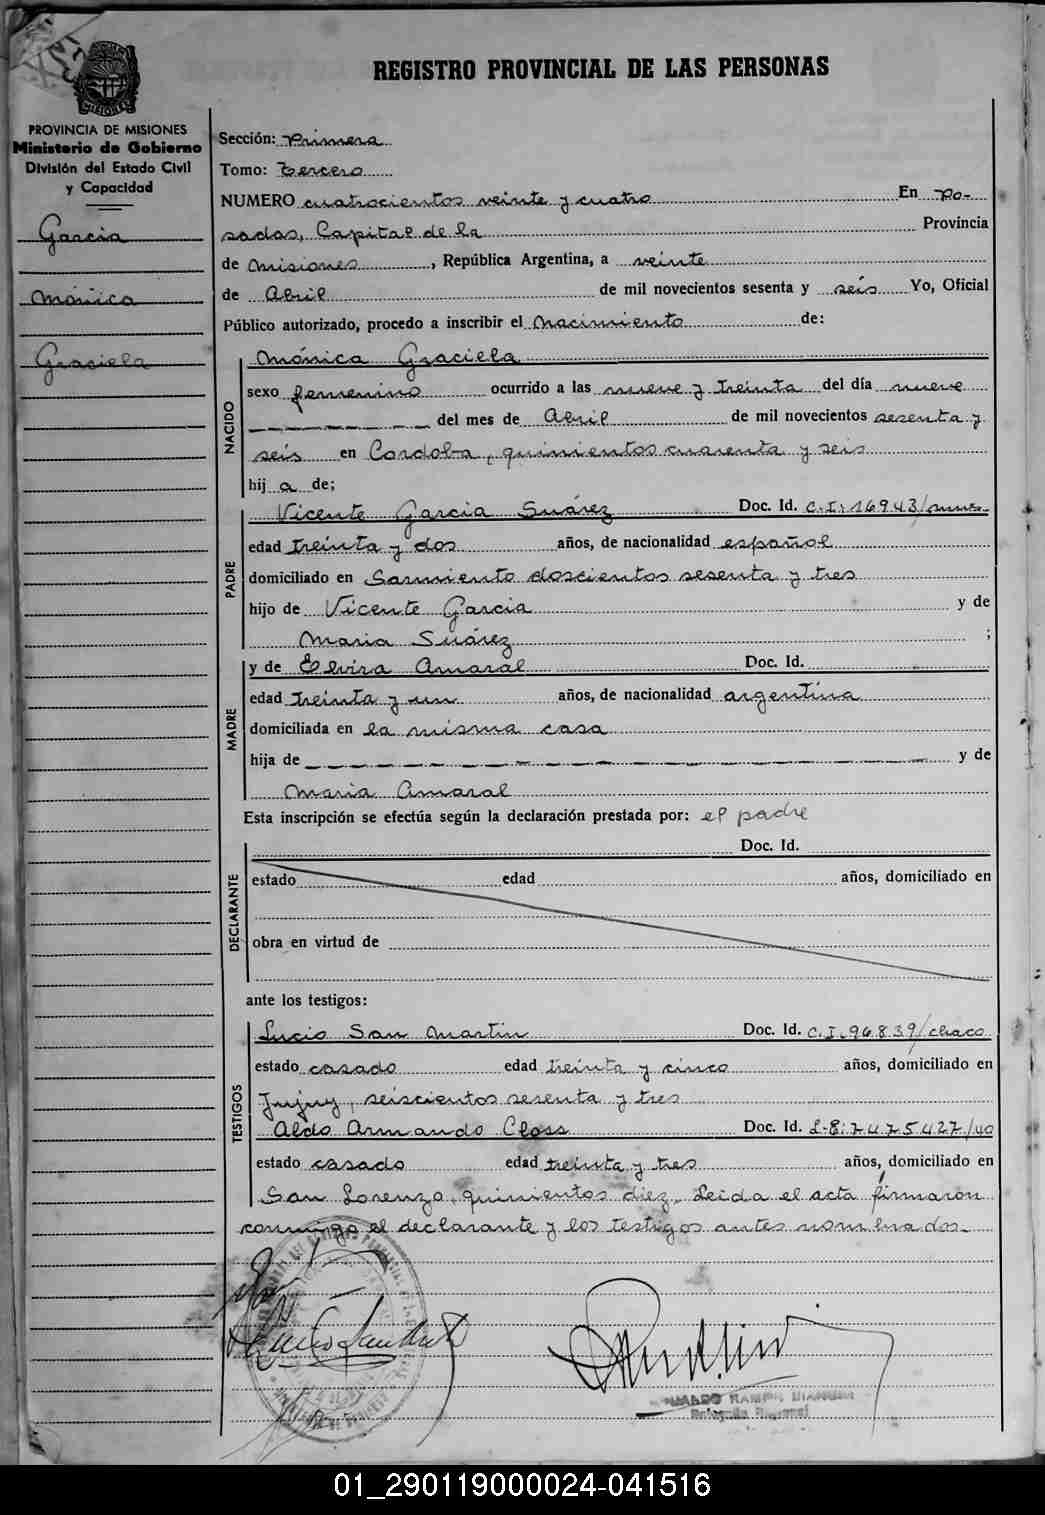 REGISTRO PROVINCIAL DE LAS PERSONAS
MISIONES
PROVINCIA DE MISIONES
Ministerio de Gobierno
División del Estado Civil
y Capacidad
Garcia
Mónica
Graciela
Sección: Primera
Tomo: Tercero
NUMERO cuatrocientos veinte y cuatro En Po-
sadas, Capital de la Provincia
de Misiones, República Argentina, a veinte
de Abril de mil novecientos sesenta y seis Yo, Oficial
Público autorizado, procedo a inscribir el nacimiento de:
NACIDO
Mónica Graciela
sexo femenino ocurrido a las nueve y treinta del día nueve
del mes de Abril de mil novecientos sesenta y
seis en Cordoba, quinientos cuarenta y seis
hij a de;
PADRE
Vicente Garcia Suárez Doc. Id. C.I: 16943/mnes.
edad treinta y dos años, de nacionalidad español
domiciliado en Sarmiento doscientos sesenta y tres
hijo de Vicente Garcia y de
Maria Suárez ;
MADRE
y de Elvira Amaral Doc. Id.
edad treinta y un años, de nacionalidad argentina
domiciliada en la misma casa
hija de y de
Maria Amaral
Esta inscripción se efectúa según la declaración prestada por: el padre
DECLARANTE
Doc. Id.
estado edad años, domiciliado en
obra en virtud de
ante los testigos:
TESTIGOS
Lucio San Martin Doc. Id. C.I. 96.839/chaco
estado casado edad treinta y cinco años, domiciliado en
Jujuy, seiscientos sesenta y tres
Aldo Armando Closs Doc. Id. L-E: 7475427/40
estado casado edad treinta y tres años, domiciliado en
San Lorenzo, quinientos diez. Leida el acta firmaron
conmigo el declarante y los testigos antes nombrados.
01_290119000024-041516